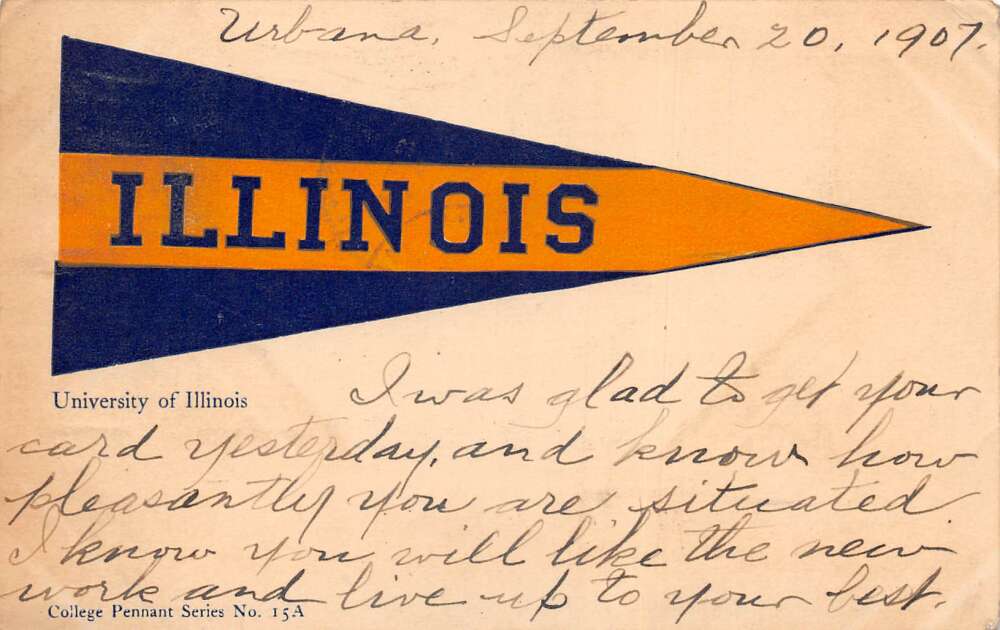 Urbana, September 20, 1907.
ILLINOIS
University of Illinois
I was glad to get your
card yesterday, and know how
pleasantly you are situated
I know you will like the new
work and live up to your best.
College Pennant Series No. 15A